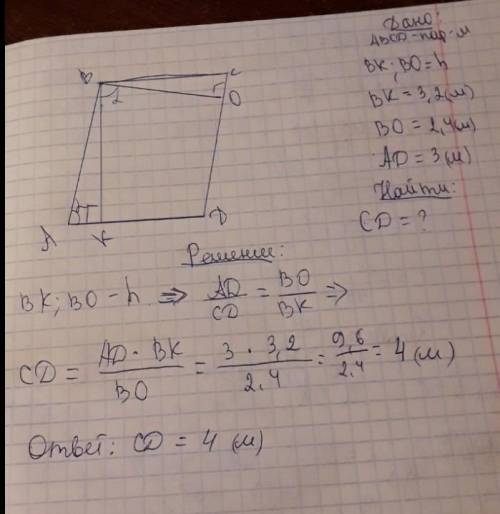 Дано:
ABCD - пар-м
BK; BO = h
BK = 3,2 (м)
BO = 2,4 (м)
AD = 3 (м)
Найти:
CD = ?
B
C
2
O
A
K
D
Решение:
BK; BO - h ⇒ AD/CD = BO/BK ⇒
CD = AD · BK/BO = 3 · 3,2/2,4 = 9,6/2,4 = 4 (м)
Ответ: CD = 4 (м)